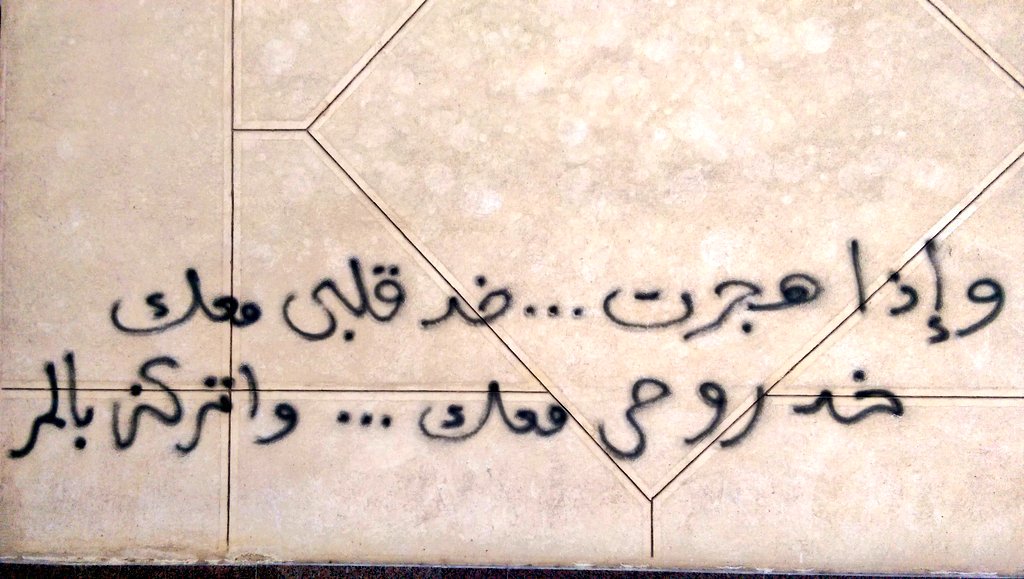 وإذا هجرت ... خد قلبي معك
خد روحي معك ... واتركني بالمر